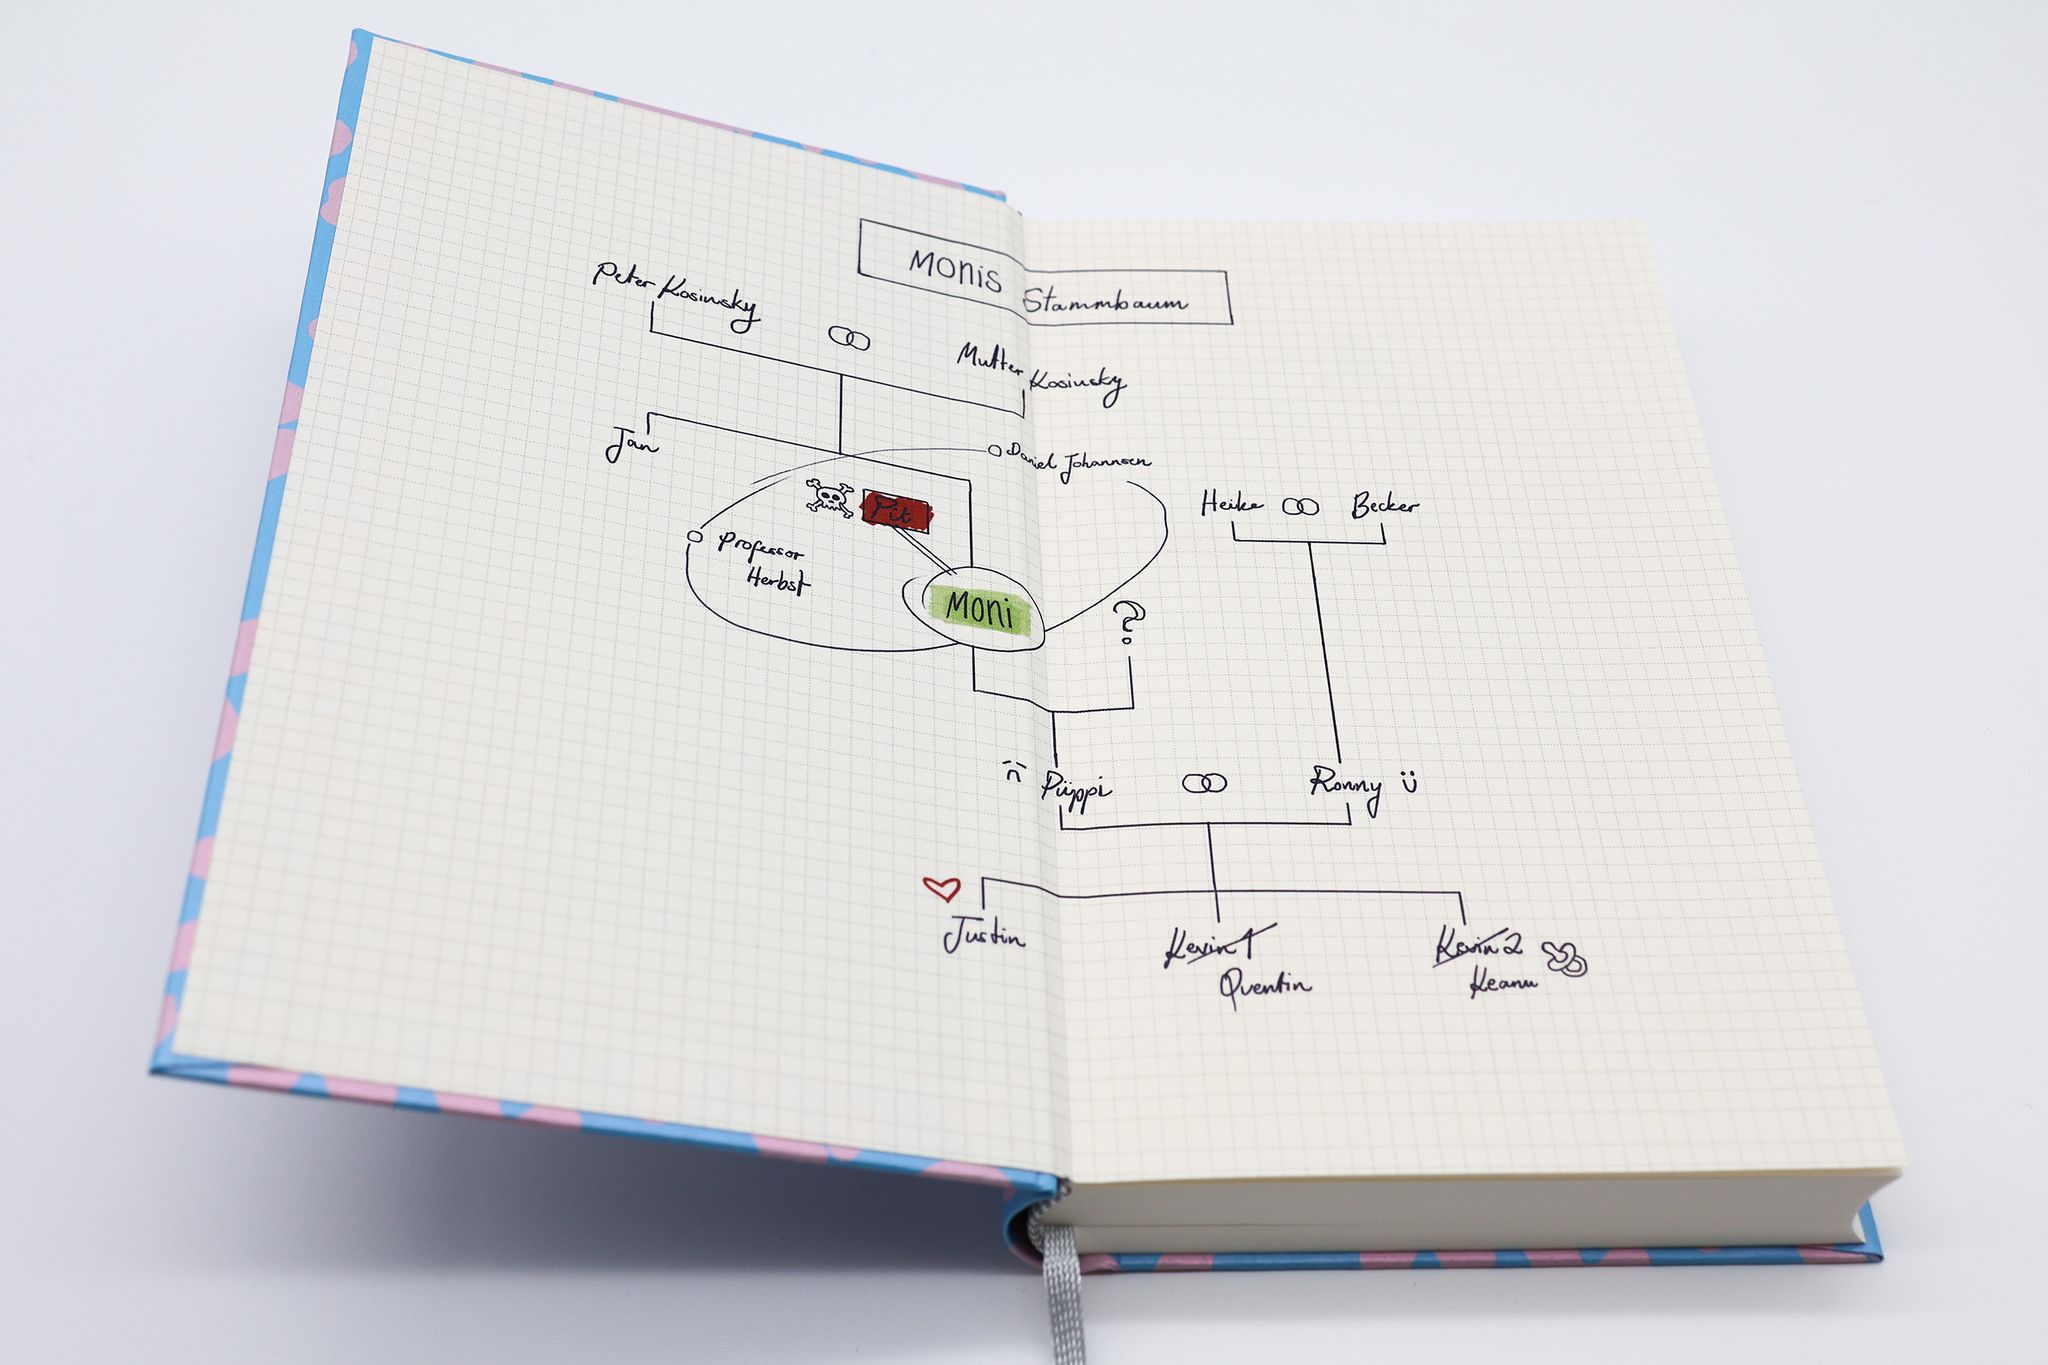 MONIS Stammbaum
Peter Kosinsky
Mutter Kosinsky
Jan
Daniel Johannsen
Pit
Heike
Becker
Professor
Herbst
MONI
?
Püppi
Ronny
Justin
Kevin 1
Quentin
Kevin 2
Keanu